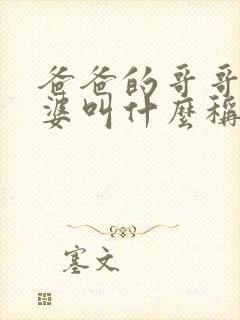 爸爸的哥哥
婆叫什麼稱
塞文